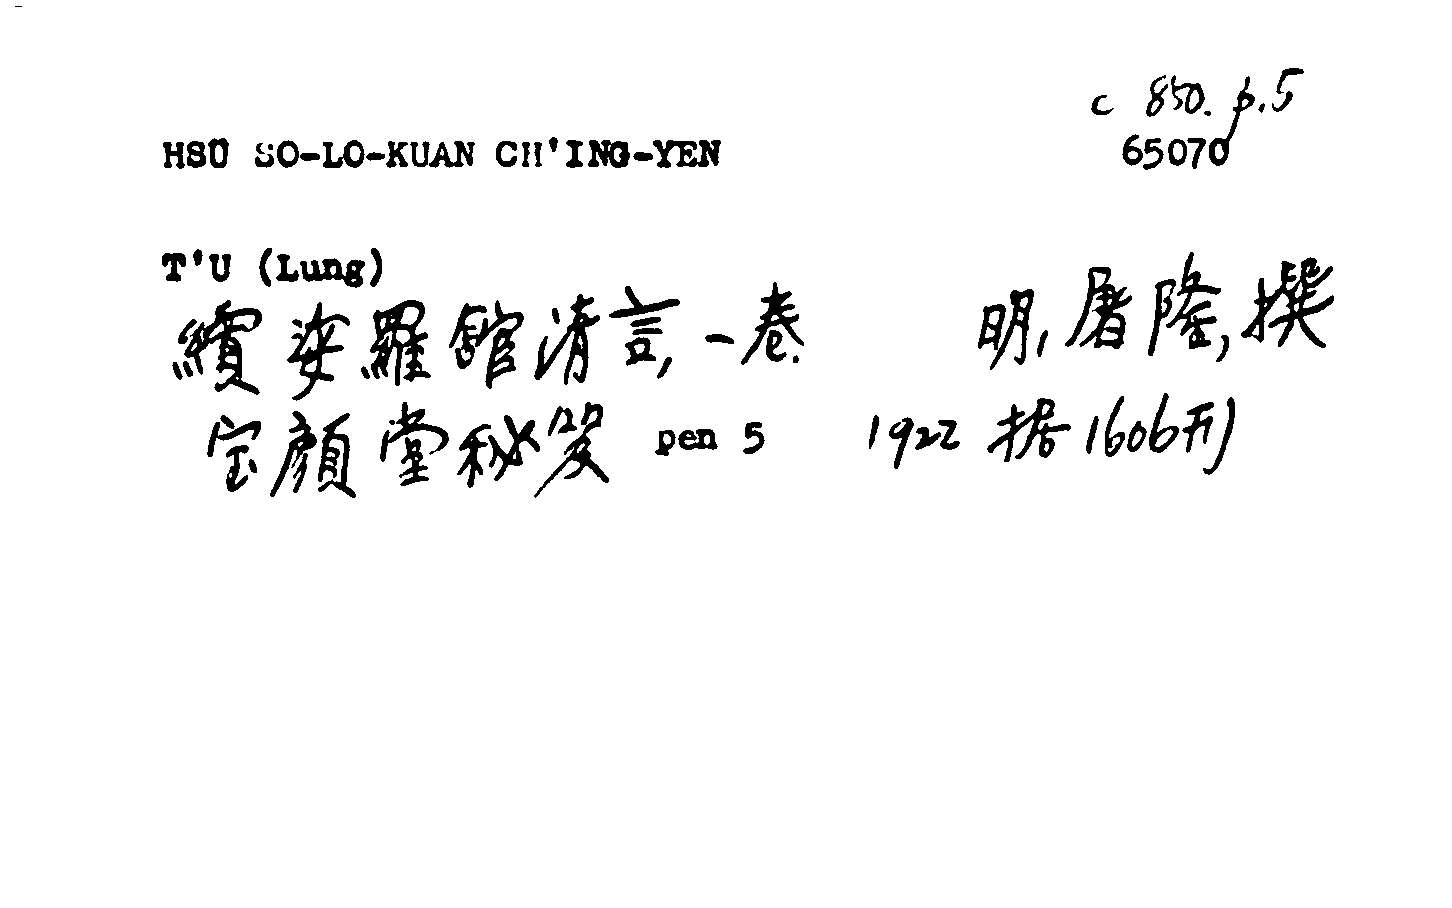 c 850. p.5
HSÜ SO-LO-KUAN CH'ING-YEN 65070
T'U (Lung)
續娑羅館清言, 一卷. 明, 屠隆, 撰
宝顔堂秘笈 pen 5 1922 据1606刊